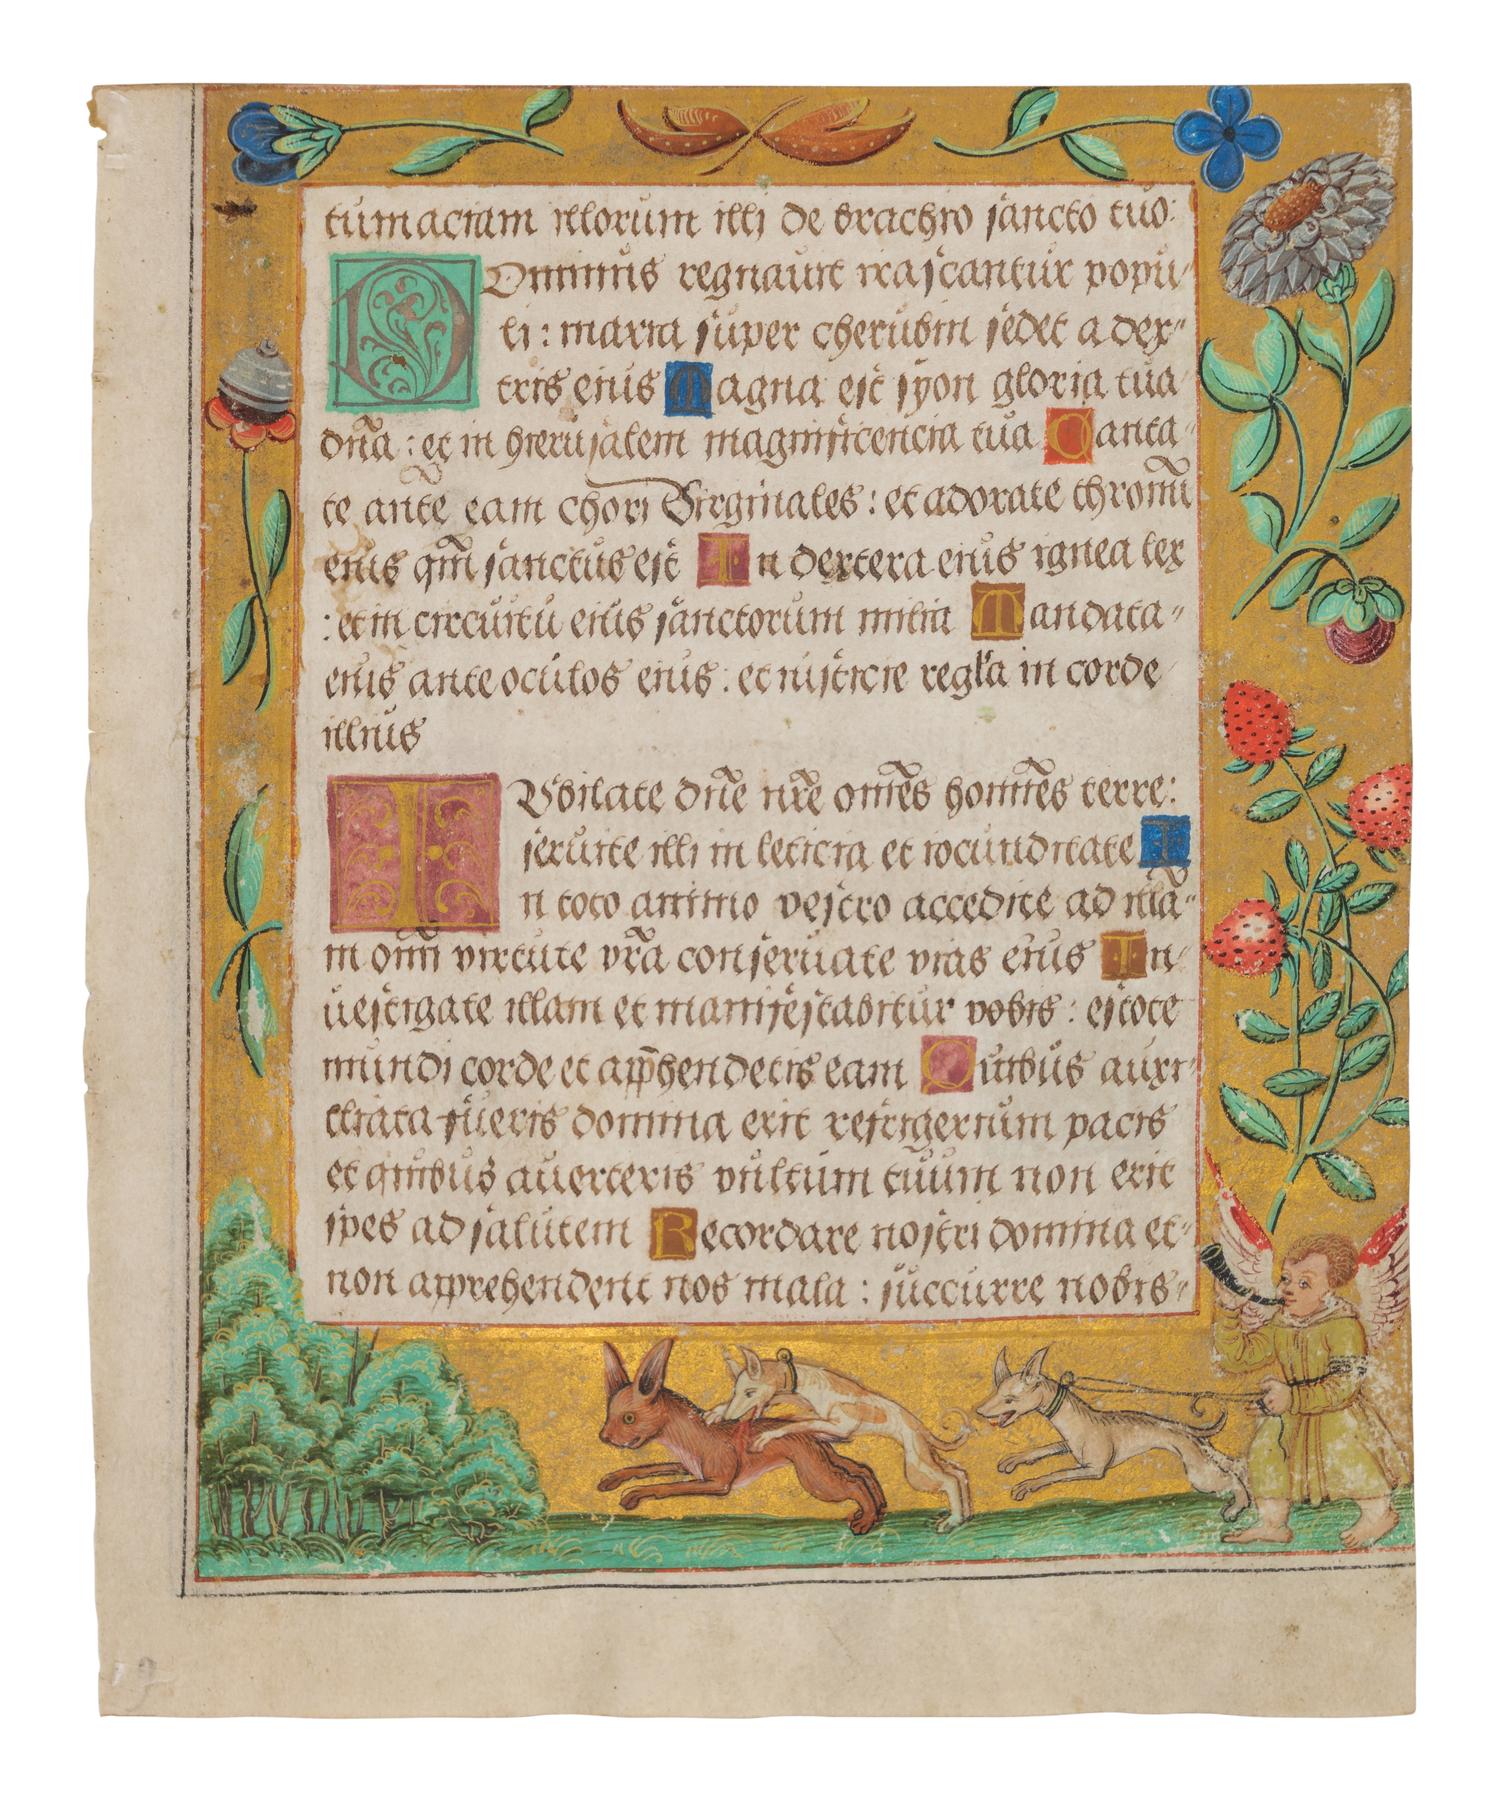 tumaciam illorum illi de brachio sancto tuo:
Ominus regnauit irascantur popu
li : maria super cherubin sedet a dex
tris eius Magna est syon gloria tua
dña : et in hierusalem magnificencia tua Canta
te ante eam chori Virginales : et adorate thronũ
eius qm̃ sanctus est In dextera eius ignea lex
: et in circuitu eius sanctorum milia Mandata
eius ante oculos eius : et iusticie regl'a in corde
illius
IVbilate dñe nr̃e oms̃ homĩes terre:
seruite illi in leticia et iocunditate I
n toto animo vestro accedite ad illã
in omñi virtute vr̃a conseruate vias eius In
uestigate illam et manifestabitur vobis : estote
mundi corde et app̃hendetis eam Quibus auxi
liata fueris domina erit refrigerium pacis
et quibus auerteris vultum tuum non erit
spes ad salutem Recordare nostri domina et
non apprehendent nos mala : succurre nobis